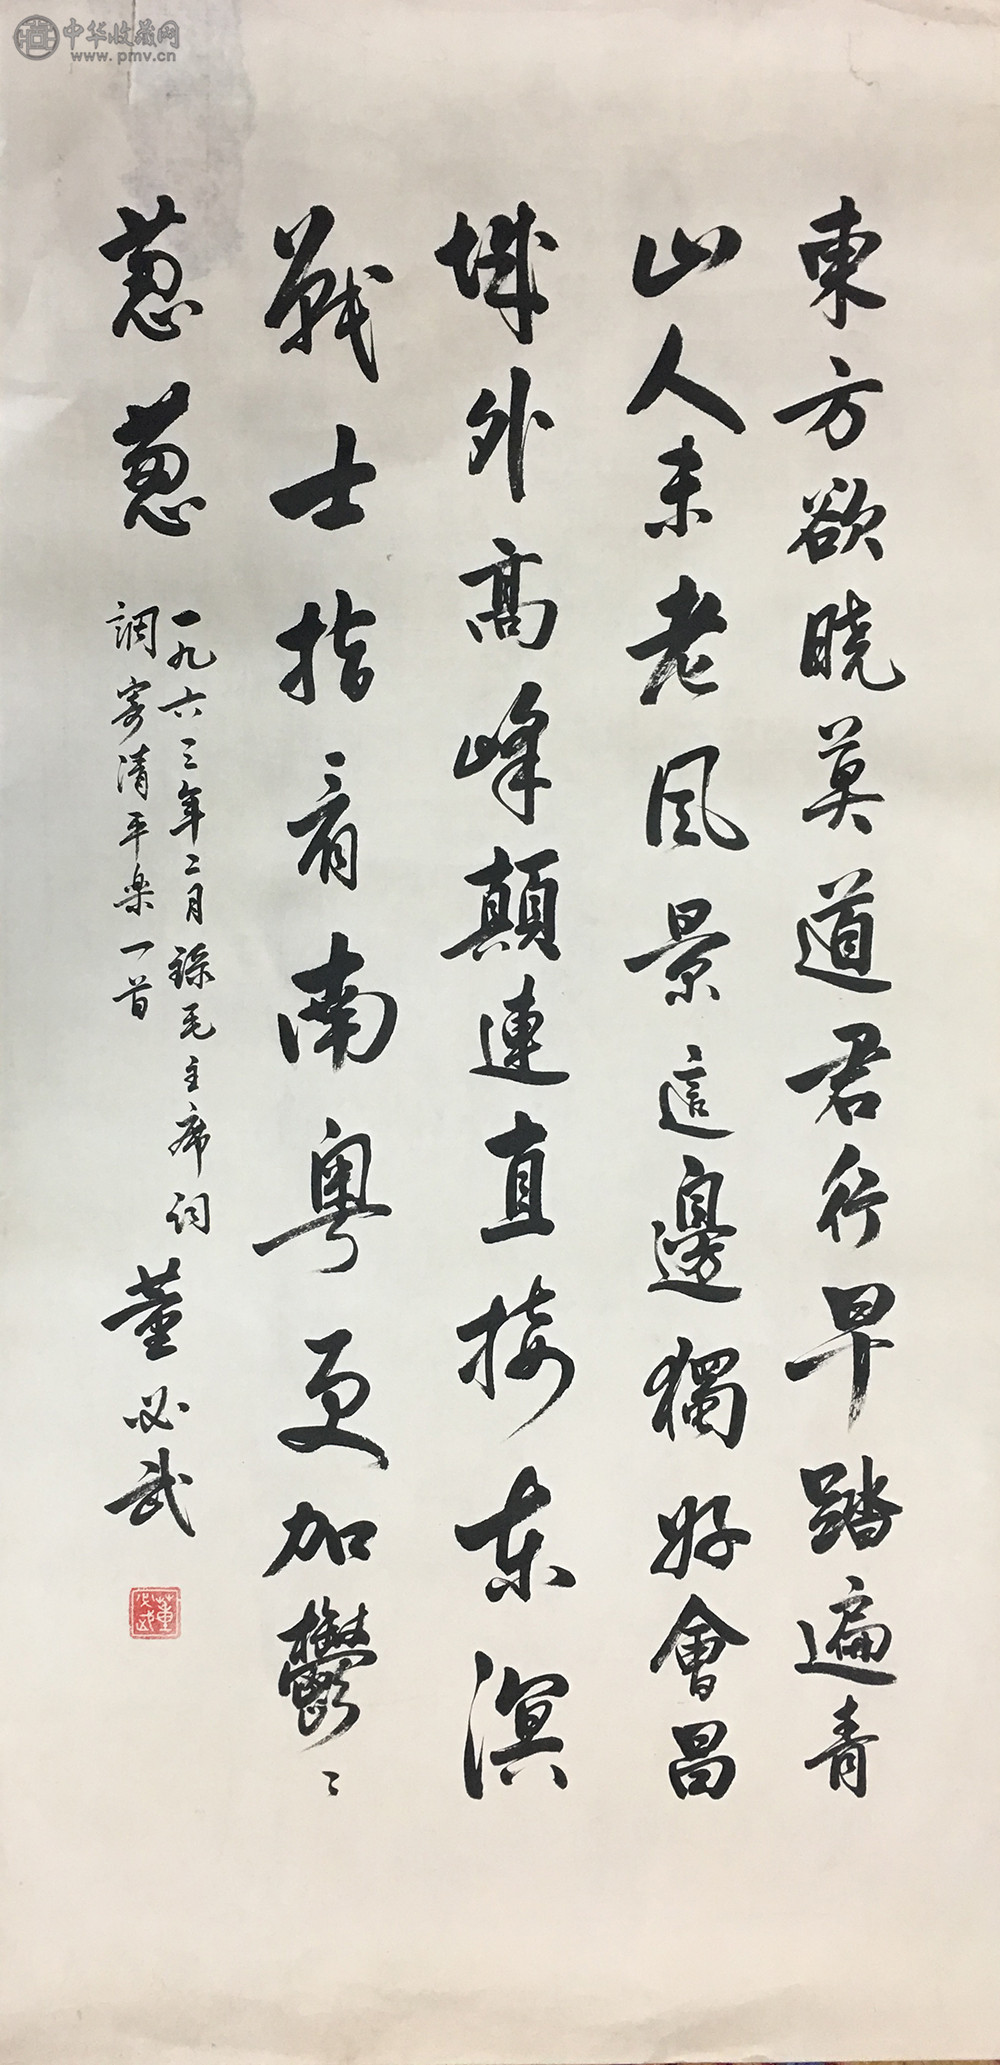 中华收藏网
www.pmv.cn
東方欲曉莫道君行早踏遍青
山人未老風景這邊獨好會昌
城外高峰顛連直接东溟
戰士指看南粵更加鬱〻
葱葱
一九六三年二月録毛主席词
調寄清平乐一首
董必武
董必武